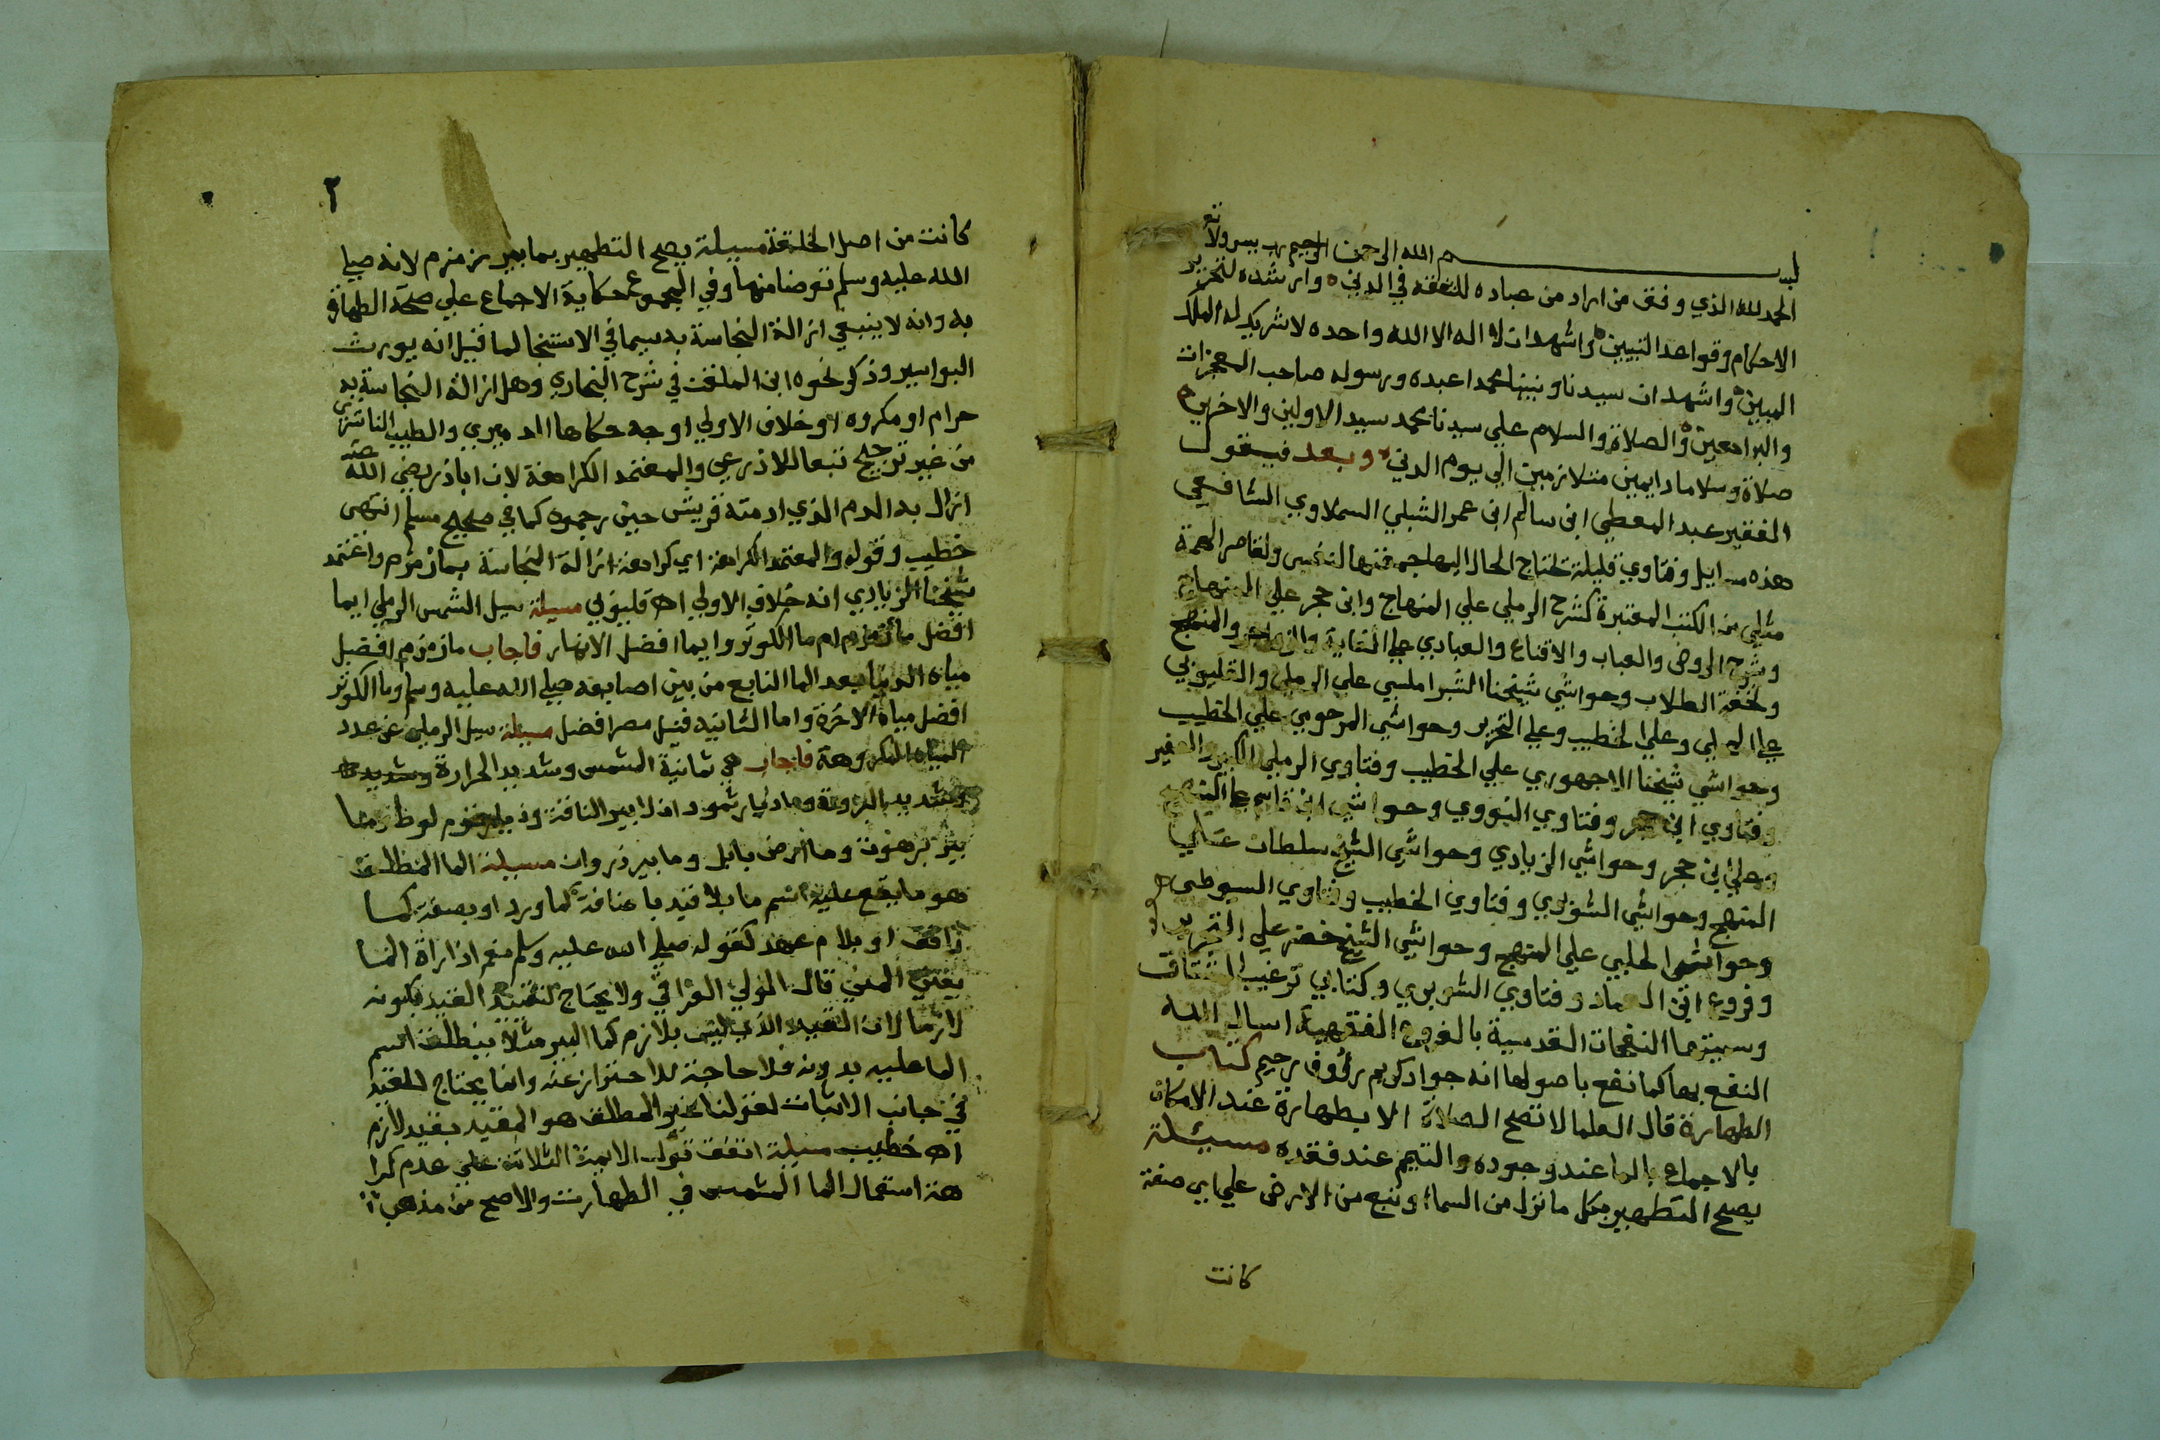 بسم الله الرحمن الرحيم رب يسر ولا تعسر
الحمد لله الذي وفق من اراد من عباده للتفقه في الدين وارشده لتحرير
الاحكام وقواعد التبيين واشهد ان لا اله الا الله واحده لا شريك له الملك
المبين واشهد ان سيدنا ونبينا محمدا عبده ورسوله صاحب المعجزات
والبراهين والصلاة والسلام علي سيدنا محمد سيد الاولين والاخرين
صلاة وسلاما دايمين متلازمين الي يوم الدين وبعد فيقول
الفقير عبد المعطي ابن سالم ابن عمر الشبلي السملاوي الشافعي
هذه مسايل وفتاوي قليلة تحتاج الحال اليها جمعتها لنفسي ولقاصر الهمة
مثلي من الكتب المعتبرة كشرح الرملي علي المنهاج وابن حجر علي المنهاج
وشرح الروض والعباب والاقناع والعبادي علي الغاية والمنهج
وتحفة الطلاب وحواشي شيخنا الشبراملسي علي الرملي والقليوبي
علي المحلي وعلي الخطيب وعلي التحرير وحواشي المرحومي علي الخطيب
وحواشي شيخنا الاجهوري علي الخطيب وفتاوي الرملي الكبير والصغير
وفتاوي ابن حجر وفتاوي النووي وحواشي ابن قاسم علي المنهج
وعلي ابن حجر وحواشي الزيادي وحواشي الشيخ سلطان علي
المنهج وحواشي الشوبري وفتاوي الخطيب وفتاوي السيوطي
وحواشي الحلبي علي المنهج وحواشي الشيخ خضر علي التحرير
وفروع ابن العماد وفتاوي الشوبري وكتابي ترغيب المشتاق
وسميتها النفحات القدسية بالفروع الفقهية اسال الله
النفع بها كما نفع باصولها انه جواد كريم رؤوف رحيم كتاب
الطهارة قال العلما لا تصح الصلاة الا بطهارة عند الامكان
بالاجماع بالما عند وجوده والتيمم عند فقده مسيلة
يصح التطهير بكل ما نزل من السماء ونبع من الارض علي اي صفة
كانت
٢
كانت من اصل الخلقة مسيلة يصح التطهير بما بير زمزم لانه صلي
الله عليه وسلم توضا منها وفي المجموع حكاية الاجماع علي صحة الطهارة
به وانه لا ينبغي ازالة النجاسة به سيما في الاستنجا لما قيل انه يورث
البواسير وذكر نحوه ابن الملقن في شرح البخاري وهل ازالة النجاسة به
حرام او مكروه او خلاف الاولي اوجه حكاها الدميري والطيب الناشري
من غير ترجيح تبعا للاذرعي والمعتمد الكراهة لان اباذر رضي الله عنه
ازال به الدم الذي ادمته قريش حين رجموه كما في صحيح مسلم انتهى
خطيب وقوله والمعتمد الكراهة اي كراهة ازالة النجاسة بماء زمزم واعتمد
شيخنا الزيادي انه خلاف الاولي اه قليوبي مسيلة سيل الشمس الرملي ايما
افضل ما زمزم ام ما الكوثر وايما افضل الانهار فاجاب ما زمزم افضل
مياه الدنيا بعد الما النابع من بين اصابعه صلي الله عليه وسلم وما الكوثر
افضل مياه الاخرة واما الثانية فنيل مصر افضل مسيلة سيل الرملي عن عدد
المياه المكروهة فاجاب هي ثمانية المشمس وشديد الحرارة
وشديد البرودة وما ديار ثمود الا بير الناقة وديار قوم لوط وما
بير برهوت وما ارض بابل وما بير ذروان مسيلة الما المطلق
هو ما يقع عليه اسم ما بلا قيد باضافة كما ورد او بصفة كما
دافق او بلام عهد كقوله صلي الله عليه وسلم نعم اذا راة الما
يعني المني قال الولي العراقي ولا يحتاج لتقييد القيد بكونه
لازما لان القيد الذي ليس بلازم كما البير مثلا ينطلق اسم
الما عليه بدونه فلا حاجة للاحتراز عنه وانما يحتاج للقيد
في جانب الاثبات لقولنا غير المطلق هو المقيد بقيد لازم
اه خطيب مسيلة اتفق قول الايمة الثلاثة علي عدم كرا
هة استعمال الما المشمس في الطهارت والاصح من مذهب